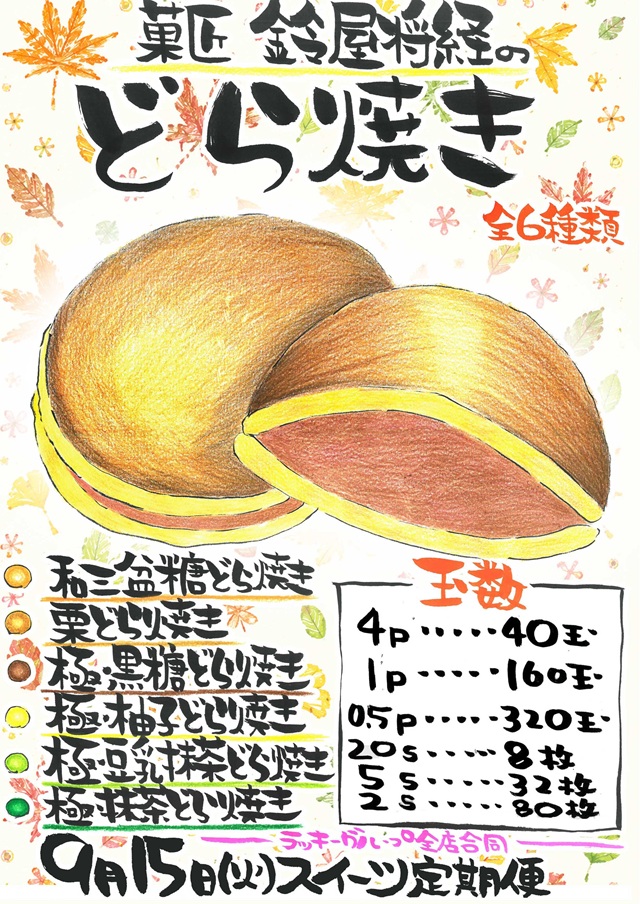 菓匠 鈴屋将経の
どら焼き
全6種類
和三盆糖どら焼き
栗どら焼き
極・黒糖どら焼き
極・柚子どら焼き
極・豆乳抹茶どら焼き
極・抹茶どら焼き
玉数
4p・・・・・40玉
1p・・・・・160玉
0.5p・・・・・320玉
20s・・・・・8枚
5s・・・・・32枚
2s・・・・・80枚
ラッキーグルっプ全店合同
9月15日(火)スイーツ定期便